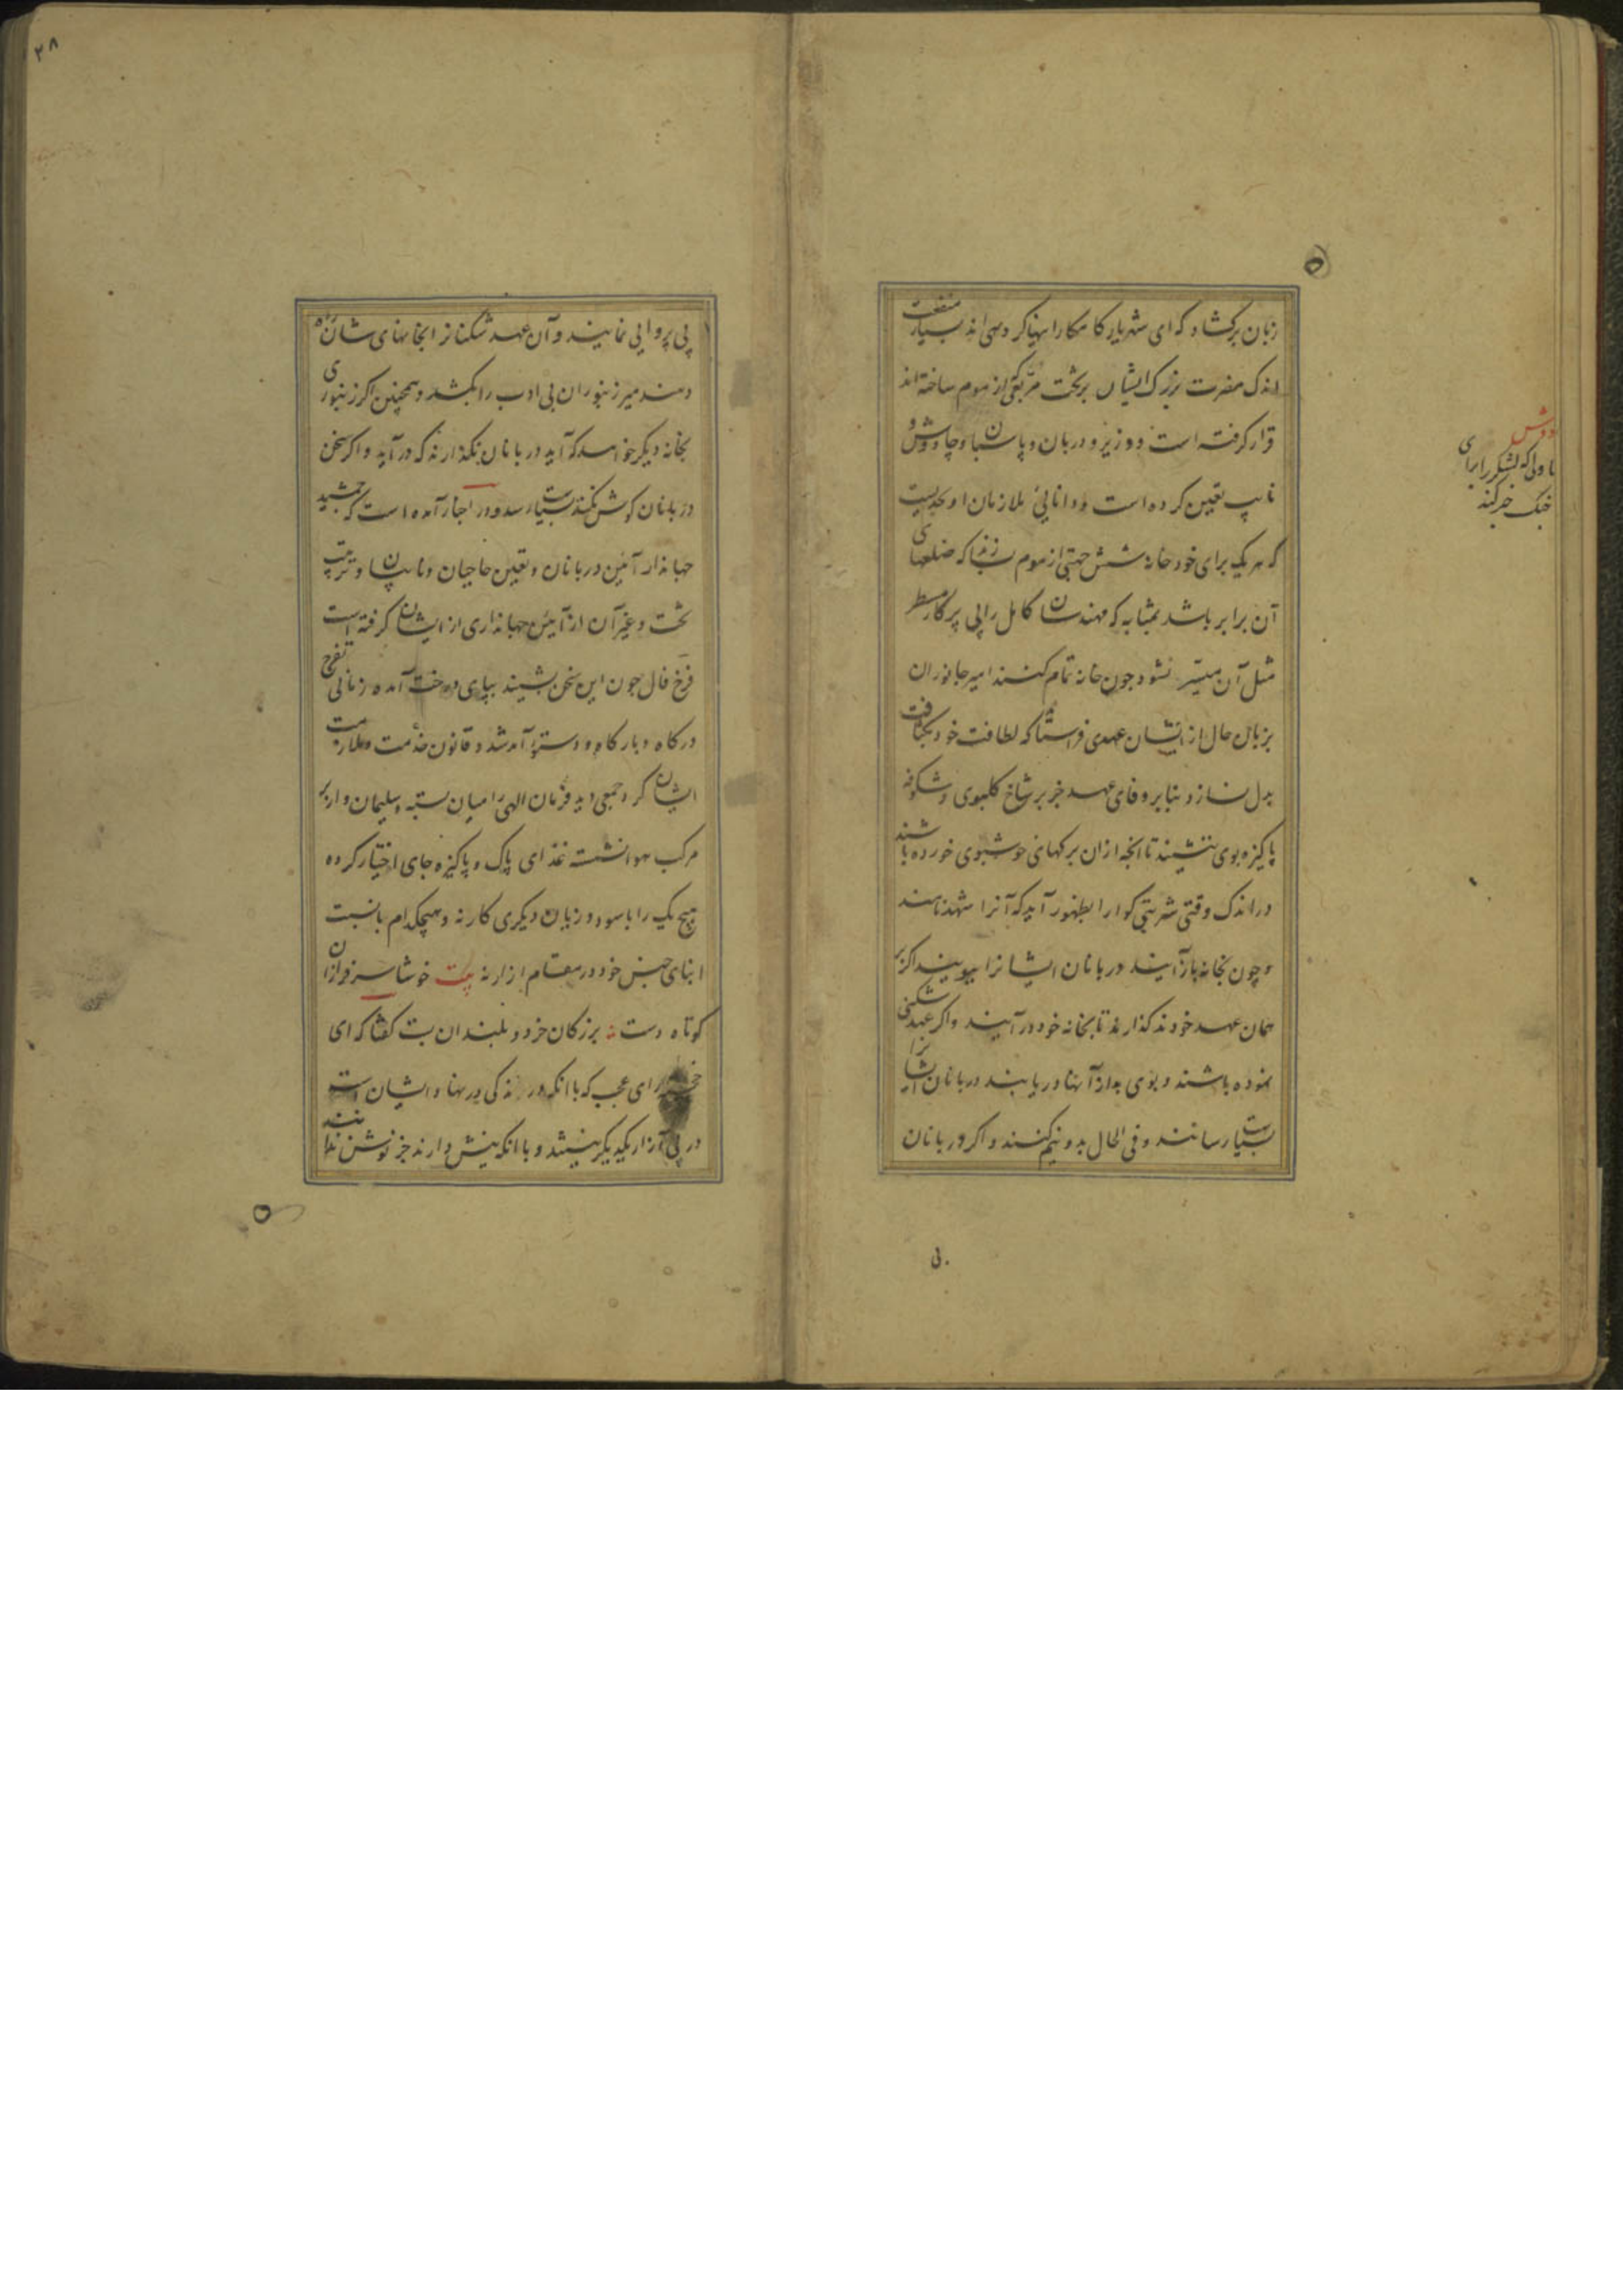 زبان برکشاد که ای شهریار کامکار اینها کروهی اند بسیار منفعت
اندک مضرت بزرک ایشان بر تخت مربعی از موم ساخته اند
قرار کرفته است و وزیر و دربان و پاسبان و چاوش و
نایب تعیین کرده است و دانایی ملازمان او بحدیست
که هر یک برای خود خانه شش جهتی از موم سازند که ضلعهای
آن برابر باشد بمثابه که مهندسان کامل را بی پرکار و مسطر
مثل آن میسر نشود چون خانه تمام کنند امیر جانوران
بزبان حال از ایشان عهدی فراستاند که لطافت خود بکثافت
بدل نسازد بنابر وفای عهد جز بر شاخ کلبوی و شکوفه
پاکیزه بوی ننشیند تا انچه ازان برکهای خوشبوی خورده باشند
در اندک وقتی شربتی کوارا بظهور آید که آنرا شهد نامند
و چون بخانه باز آیند دربانان ایشانرا ببویند اکر بر
همان عهد خودند کذارند تا بخانه خود در آیند و اکر عهد شکنی
نموده باشند و بوی بد از آنها دریابند دربانان ایشانرا
بسیاست رسانند و فی الحال بدو نیم کنند و اکر دربانان
بی
دوش
تاولی که لشکر را برای
جنک خبر کند
۲۸
بی پروایی نمایند و آن عهد شکنانرا بخانهای شان راه
دهند میر زنبوران بی ادب را بکشد و همچنین اکر زنبوری
بخانه دیکر خواهد که آید دربانان نکذارند که در آید و اکر سخن
دربانان کوش نکند بسیاست رسد و در اخبار آمده است که جمشید
جهاندار آئین دربانان و تعیین حاجبان و نایبان و ترتیب
تخت و غیر آن از آئین جهانداری از ایشان کرفته است
فرخ فال چون این سخن بشنید بپای درخت آمده زمانی تفرج
درکاه و بارکاه و دستور آمد شد و قانون خدمت و ملازمت
ایشان کرد جمعی دید فرمان الهی را میان بسته و سلیمان وار بر
مرکب هوا نشسته غذای پاک و پاکیزه جای اختیار کرده
هیچ یک را با سود و زیان دیکری کار نه و هیچکدام بانسبت
ابنای جنس خود در مقام ازار نه بیت خوشا سرفرازان
کوتاه دست ؞ بزرکان خرد و بلندان پست کفتا که ای
رای عجب که با انکه درندکی در نهاد ایشان است
در پی آزار یکدیکر نیستند و با انکه نیش دارند جز نوش ندانند